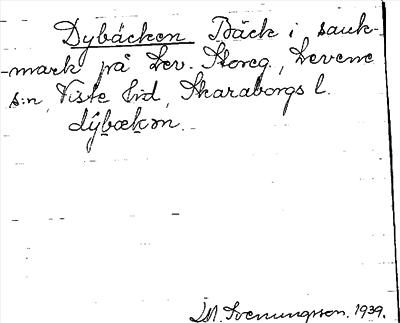 Dybäcken Bäck i sank-
mark på Lev. Storeg., Levene
s:n, Viste hd, Skaraborgs l.
dýbækən.
M. Svenungsson. 1939.